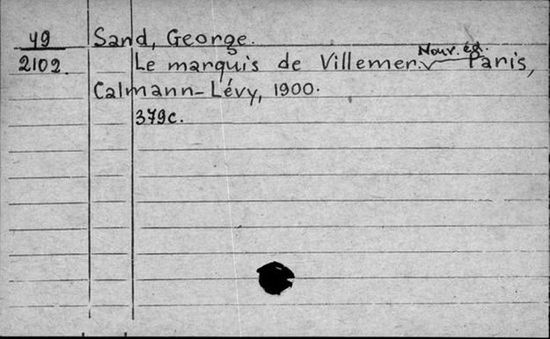 49
2102.
Sand, George.
Le marquis de Villemer. Nouv. éd. Paris,
Calmann-Lévy, 1900.
379c.